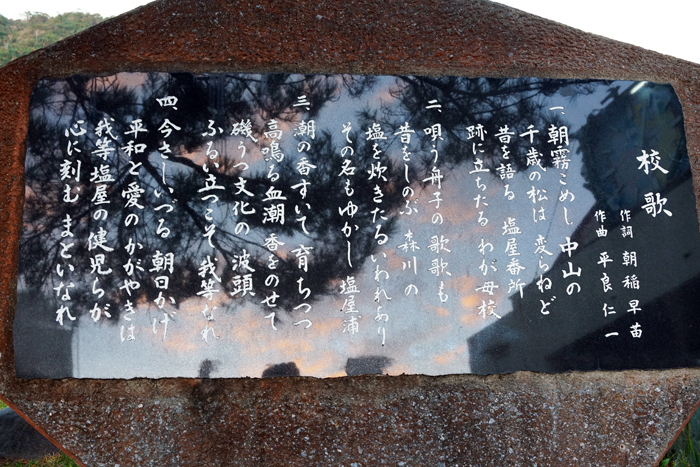 校歌
作詞 朝稲 早苗
作曲 平良 仁一
一、朝霧こめし 中山の
千歳の松は 変らねど
昔を語る 塩屋番所
跡に立ちたる わが母校
二、唄う舟子の 歌歌も
昔をしのぶ 森川の
塩を炊きたる いわれあり
その名もゆかし 塩屋浦
三、朝の香すいて 育ちつつ
高鳴る血潮 香をのせて
磯うつ文化の 波頭
ふるい立つこそ 我等なれ
四、今さしいづる 朝日かげ
平和と愛の かがやきは
我等塩屋の 健児らが
心に刻む まといなれ